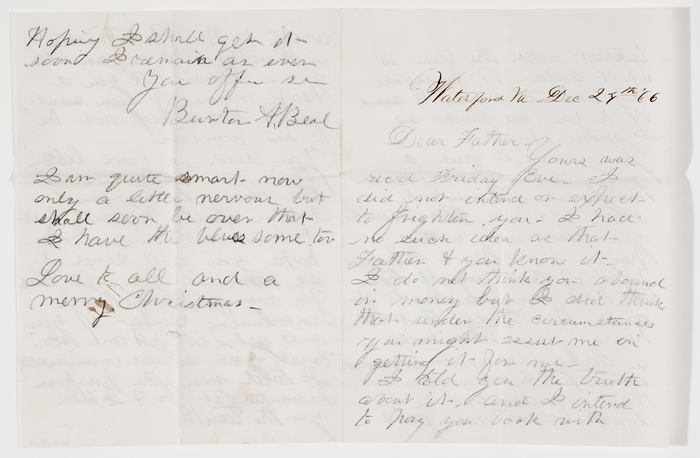 Hoping I shall get it
soon I remain as ever
Your affn son
Burton A Beal
I am quite smart now
only a little nervous but
shall soon be over that
I have the blues some too
Love to all and a
merry Christmas -
Waterford Va Dec 27th '66
Dear Father -
Yours was
recd Friday Eve - I
did not intend or expect
to frighten you - I had
no such idea as that
Father & you know it -
I do not think you abound
in money but I did think
that under the circumstances
you might assist me in
getting it for me -
I told you the truth
about it - and I intend
to pay you back with